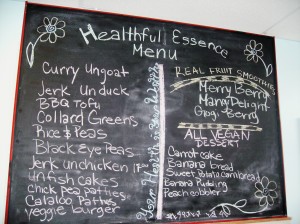 Healthful Essence
Menu
Curry Ungoat
Jerk Unduck
BBQ Tofu
Collard Greens
Rice & Peas
Black Eye Peas
Jerk unchicken
unfish cakes
chick pea patties
Calaloo Patties
veggie burger
Your Health is Your Wealth
REAL FRUIT SMOOTHIES
Merry Berry
Mango Delight
Berry
ALL VEGAN
DESSERT
Carrot cake
Banana bread
Sweet potato cornbread
Banana Pudding
Peach cobbler